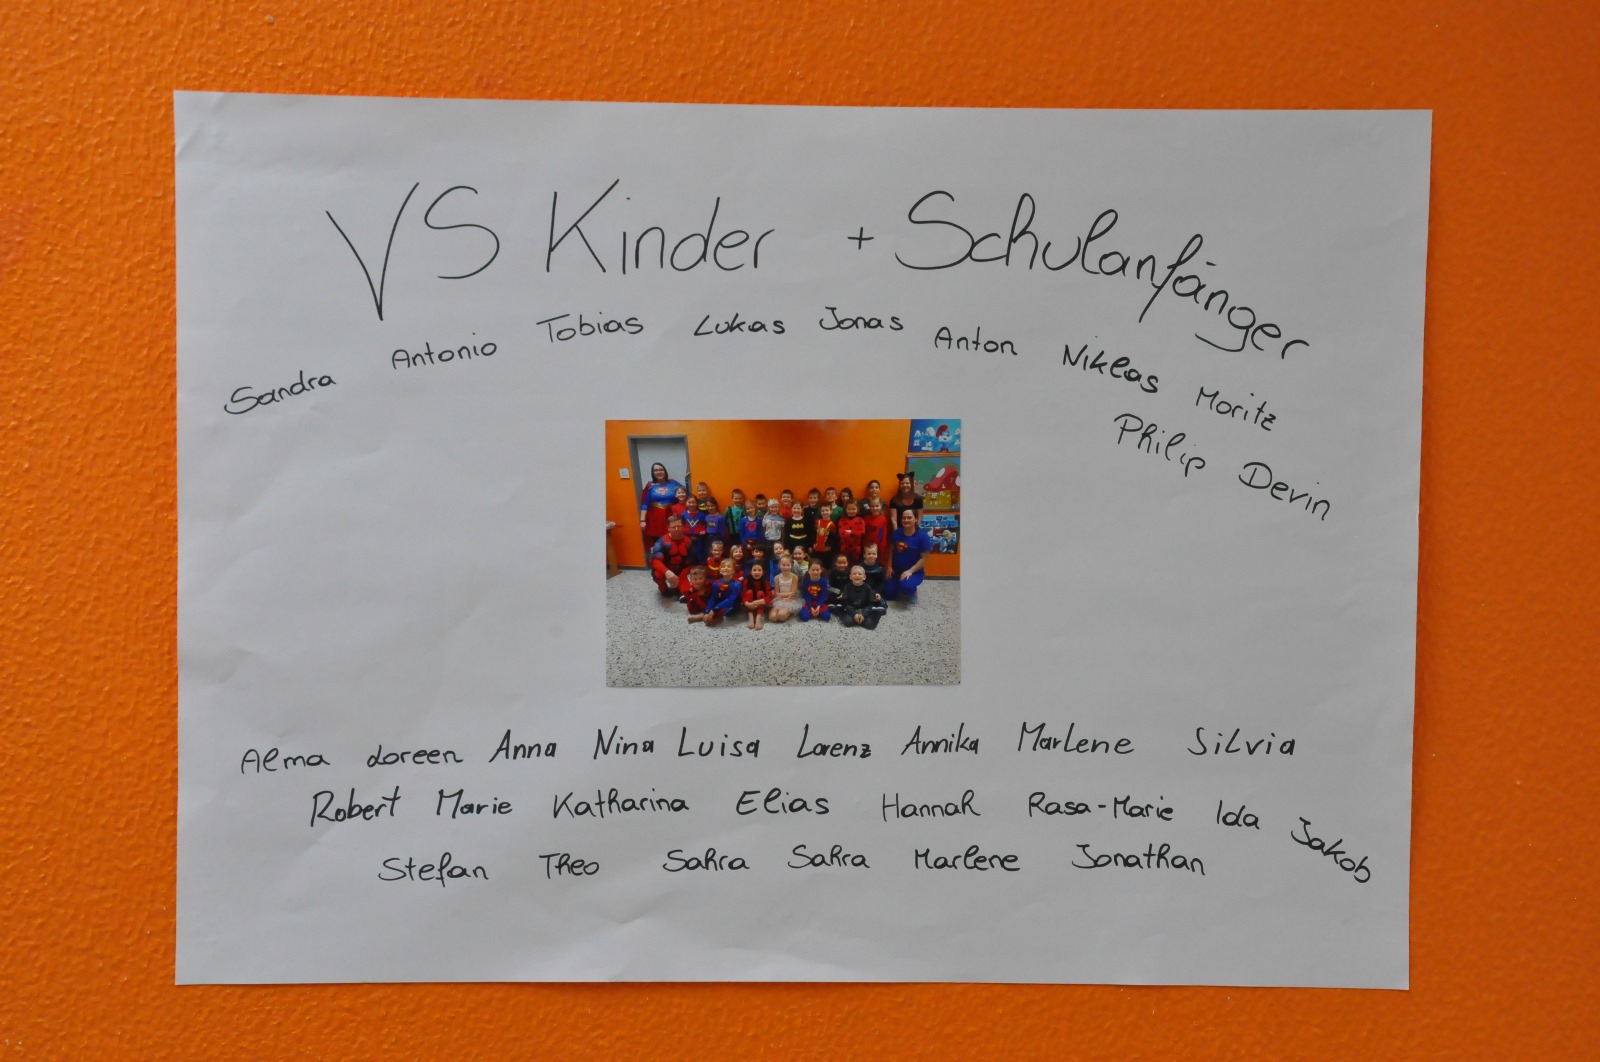 VS Kinder + Schulanfänger
Sandra Antonio Tobias Lukas Jonas Anton Niklas Moritz
Philip Devin
Alma Loreen Anna Nina Luisa Lorenz Annika Marlene Silvia
Robert Marie Katharina Elias Hannah Rosa-Marie Ida Jakob
Stefan Theo Sahra Sahra Marlene Jonathan